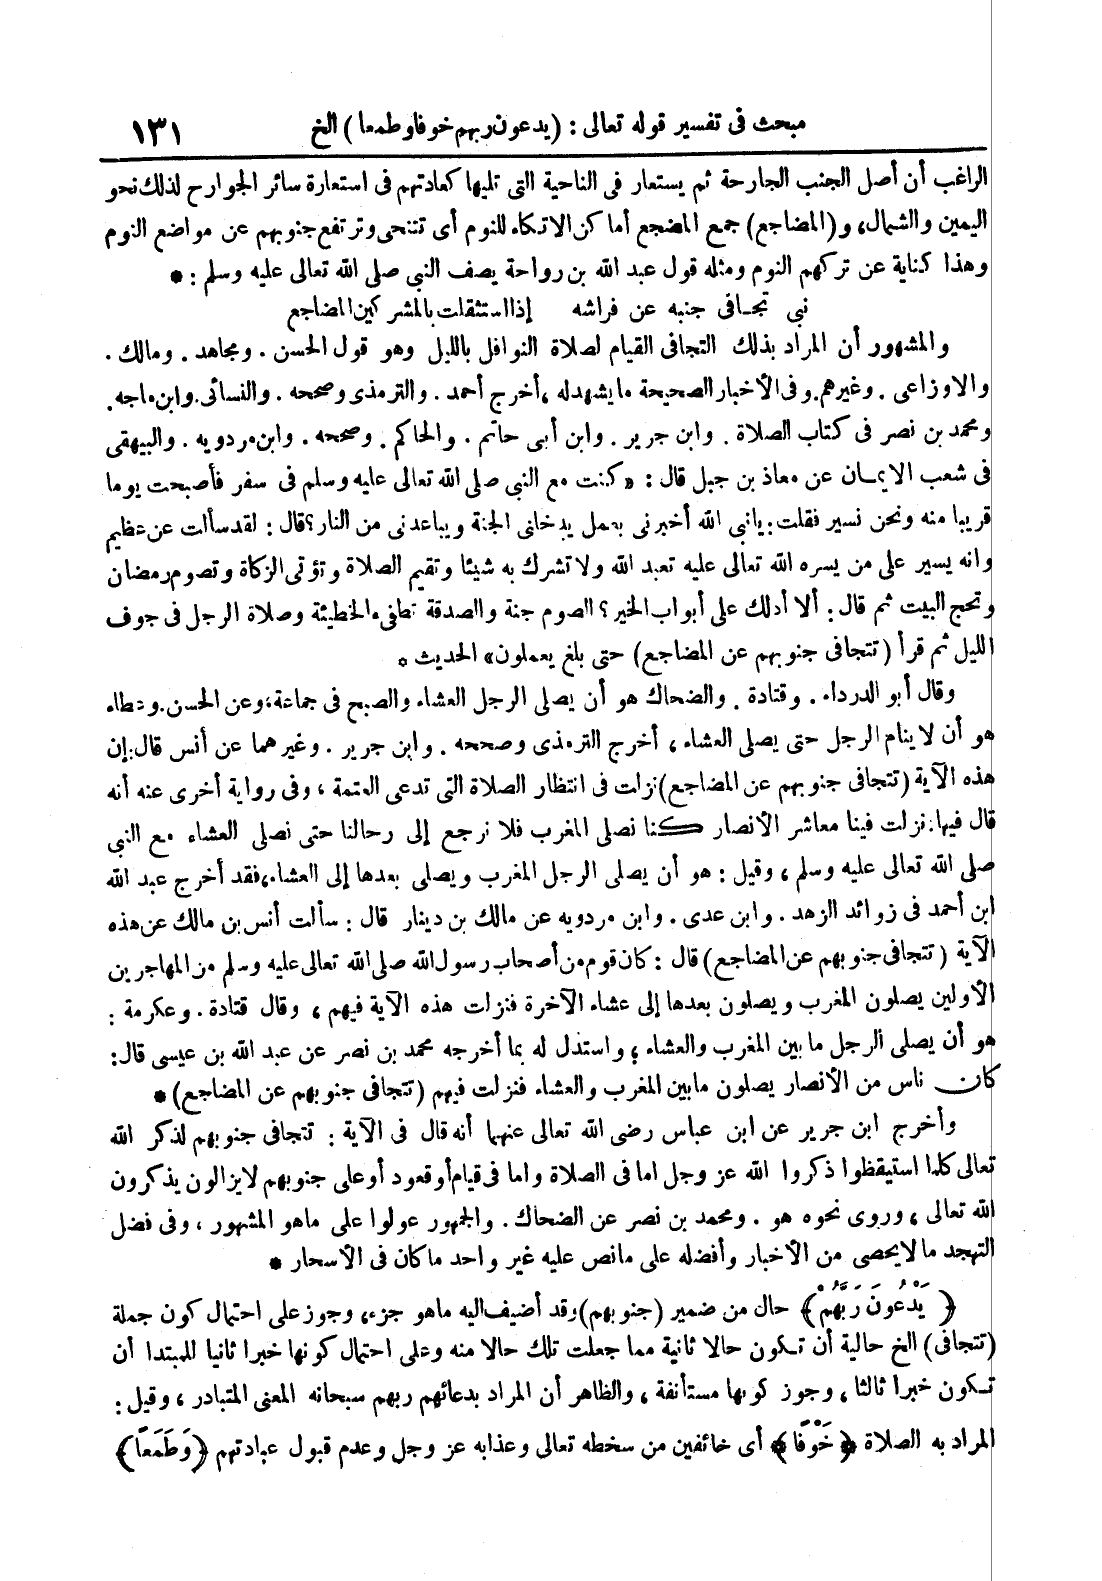 مبحث في تفسير قوله تعالى : ( يدعون ربهم خوفا وطمعا ) الخ ١٣١
الراغب أن أصل الجنب الجارحة ثم يستعار في الناحية التي تليها كعادتهم في استعارة سائر الجوارح لذلك نحو
اليمين والشمال، و (المضاجع) جمع المضجع أماكن الاتكاء للنوم أى تتنحى وترتفع جنوبهم عن مواضع النوم
وهذا كناية عن تركهم النوم ومثله قول عبد الله بن رواحة يصف النبي صلى الله تعالى عليه وسلم : *
نبي تجافى جنبه عن فراشه إذا استثقلت بالمشركين المضاجع
والمشهور أن المراد بذلك التجافى القيام لصلاة النوافل بالليل وهو قول الحسن . ومجاهد . ومالك .
والاوزاعى . وغيرهم. وفى الأخبار الصحيحة ما يشهد له ، أخرج أحمد . والترمذى وصححه . والنسائى. وابن ماجه.
ومحمد بن نصر فى كتاب الصلاة . وابن جرير . وابن أبى حاتم . والحاكم . وصححه . وابن مردويه . والبيهقى
فى شعب الايمان عن معاذ بن جبل قال : «كنت مع النبي صلى الله تعالى عليه وسلم فى سفر فأصبحت يوما
قريبا منه ونحن نسير فقلت: يانبى الله أخبرنى بعمل يدخلنى الجنة ويباعدنى من النار؟ قال : لقد سألت عن عظيم
وانه يسير على من يسره الله تعالى عليه تعبد الله ولا تشرك به شيئا وتقيم الصلاة وتؤتى الزكاة وتصوم رمضان
وتحج البيت ثم قال : ألا أدلك على أبواب الخير ؟ الصوم جنة والصدقة تطفىء الخطيئة وصلاة الرجل فى جوف
الليل ثم قرأ (تتجافى جنوبهم عن المضاجع) حتى بلغ يعملون» الحديث *
وقال أبو الدرداء . وقتادة . والضحاك هو أن يصلى الرجل العشاء والصبح فى جماعة، وعن الحسن. وعطاء
هو أن لا ينام الرجل حتى يصلى العشاء ، أخرج الترمذى وصححه . وابن جرير . وغيرهما عن أنس قال: إن
هذه الآية (تتجافى جنوبهم عن المضاجع) نزلت فى انتظار الصلاة التى تدعى العتمة ، وفى رواية أخرى عنه أنه
قال فيها: نزلت فينا معاشر الأنصار كنا نصلى المغرب فلا نرجع إلى رحالنا حتى نصلى العشاء مع النبي
صلى الله تعالى عليه وسلم ، وقيل : هو أن يصلى الرجل المغرب ويصلى بعدها إلى العشاء، فقد أخرج عبد الله
ابن أحمد فى زوائد الزهد . وابن عدى . وابن مردويه عن مالك بن دينار قال : سألت أنس بن مالك عن هذه
الآية ( تتجافى جنوبهم عن المضاجع) قال : كان قوم من أصحاب رسول الله صلى الله تعالى عليه وسلم من المهاجرين
الأولين يصلون المغرب ويصلون بعدها إلى عشاء الآخرة فنزلت هذه الآية فيهم ، وقال قتادة . وعكرمة :
هو أن يصلى الرجل ما بين المغرب والعشاء ، واستدل له بما أخرجه محمد بن نصر عن عبد الله بن عيسى قال:
كان ناس من الأنصار يصلون مابين المغرب والعشاء فنزلت فيهم (تتجافى جنوبهم عن المضاجع) *
وأخرج ابن جرير عن ابن عباس رضى الله تعالى عنهما أنه قال فى الآية : تتجافى جنوبهم لذكر الله
تعالى كلما استيقظوا ذكروا الله عز وجل اما فى الصلاة واما فى قيام أو قعود أو على جنوبهم لايزالون يذكرون
الله تعالى ، وروى نحوه هو . ومحمد بن نصر عن الضحاك. والجمهور عولوا على ماهو المشهور ، وفى فضل
التهجد ما لا يحصى من الأخبار وأفضله على مانص عليه غير واحد ما كان فى الأسحار *
﴿ يَدْعُونَ رَبَّهُمْ ﴾ حال من ضمير (جنوبهم) وقد أضيف اليه ماهو جزء، وجوز على احتمال كون جملة
(تتجافى) الخ حالية أن تكون حالا ثانية مما جعلت تلك حالا منه وعلى احتمال كونها خبرا ثانيا للمبتدا أن
تكون خبرا ثالثا ، وجوز كونها مستأنفة ، والظاهر أن المراد بدعائهم ربهم سبحانه المعنى المتبادر ، وقيل :
المراد به الصلاة ﴿ خَوْفًا ﴾ أى خائفين من سخطه تعالى وعذابه عز وجل وعدم قبول عبادتهم ﴿ وَطَمَعًا ﴾